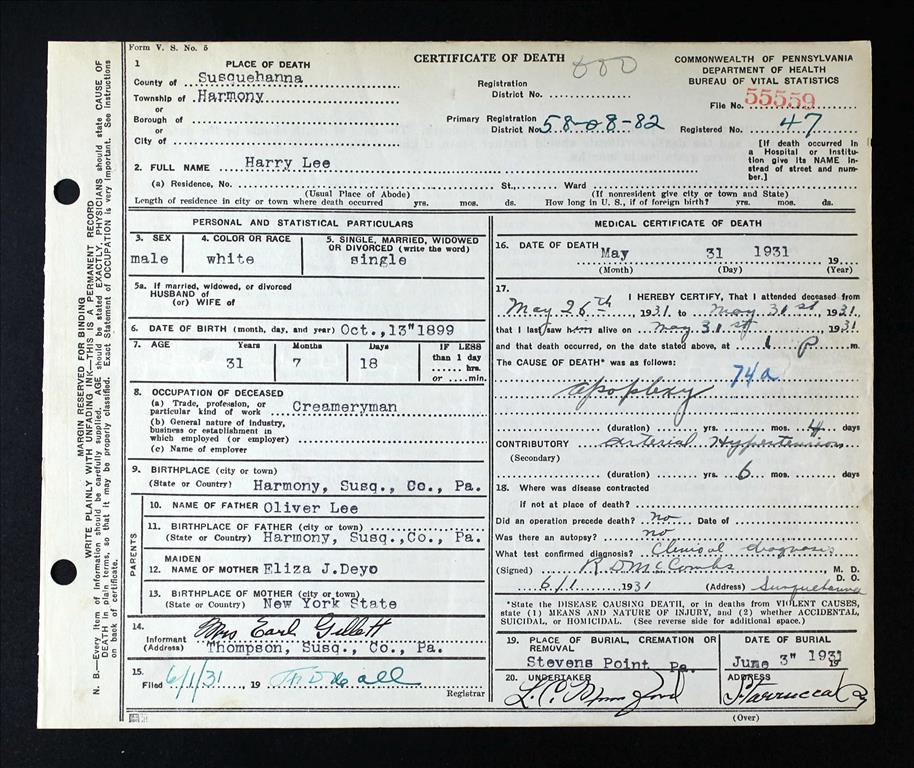 Form V. S. No. 5
CERTIFICATE OF DEATH
COMMONWEALTH OF PENNSYLVANIA
DEPARTMENT OF HEALTH
BUREAU OF VITAL STATISTICS
1 PLACE OF DEATH
County of Susquehanna
Township of Harmony
or
Borough of
or
City of
Registration
District No.
Primary Registration
District No. 58-08-82
File No. 55559
Registered No. 47
[If death occurred in
a Hospital or Institu-
tion give its NAME in-
stead of street and num-
ber.]
2. FULL NAME Harry Lee
(a) Residence, No. St., Ward
(Usual Place of Abode) (If nonresident give city or town and State)
Length of residence in city or town where death occurred yrs. mos. ds. How long in U. S., if of foreign birth? yrs. mos. ds.
PERSONAL AND STATISTICAL PARTICULARS
3. SEX
male
4. COLOR OR RACE
white
5. SINGLE, MARRIED, WIDOWED
OR DIVORCED (write the word)
single
5a. If married, widowed, or divorced
HUSBAND of
(or) WIFE of
6. DATE OF BIRTH (month, day, and year) Oct., 13" 1899
7. AGE Years Months Days IF LESS
than 1 day
31 7 18 hrs.
or min.
8. OCCUPATION OF DECEASED
(a) Trade, profession, or
particular kind of work Creameryman
(b) General nature of industry,
business or establishment in
which employed (or employer)
(c) Name of employer
9. BIRTHPLACE (city or town)
(State or Country) Harmony, Susq., Co., Pa.
PARENTS
10. NAME OF FATHER Oliver Lee
11. BIRTHPLACE OF FATHER (city or town)
(State or Country) Harmony, Susq.,Co., Pa.
MAIDEN
12. NAME OF MOTHER Eliza J.Deyo
13. BIRTHPLACE OF MOTHER (city or town)
(State or Country) New York State
14. Mrs Earl Gillett
Informant
(Address) Thompson, Susq., Co., Pa.
15.
Filed 6/1/31, 19
Registrar
MEDICAL CERTIFICATE OF DEATH
16. DATE OF DEATH May 31 1931 19
(Month) (Day) (Year)
17. I HEREBY CERTIFY, That I attended deceased from
May 26th, 1931 to May 31st, 1931
that I last saw him alive on May 31st, 1931
and that death occurred, on the date stated above, at 1 P m.
The CAUSE OF DEATH* was as follows:
74a
apoplexy
(duration) yrs. mos. 4 days
CONTRIBUTORY arterial Hypertension
(Secondary)
(duration) yrs. 6 mos. days
18. Where was disease contracted
if not at place of death?
Did an operation precede death? no Date of
Was there an autopsy? no
What test confirmed diagnosis? Clinical diagnosis
(Signed) R D McCombs M. D.
D. O.
6/1 1931 (Address) Susquehanna
*State the DISEASE CAUSING DEATH, or in deaths from VIOLENT CAUSES,
state (1) MEANS AND NATURE OF INJURY, and (2) whether ACCIDENTAL,
SUICIDAL, or HOMICIDAL. (See reverse side for additional space.)
19. PLACE OF BURIAL, CREMATION OR
REMOVAL
Stevens Point, Pa.
DATE OF BURIAL
June 3" 1931
19
20. UNDERTAKER
ADDRESS
Starrucca Pa
(Over)
MARGIN RESERVED FOR BINDING
WRITE PLAINLY WITH UNFADING INK—THIS IS A PERMANENT RECORD
N. B.—Every item of Information should be carefully supplied. AGE should be stated EXACTLY. PHYSICIANS should state CAUSE OF
DEATH in plain terms, so that it may be properly classified. Exact Statement of OCCUPATION is very important. See instructions
on back of certificate.